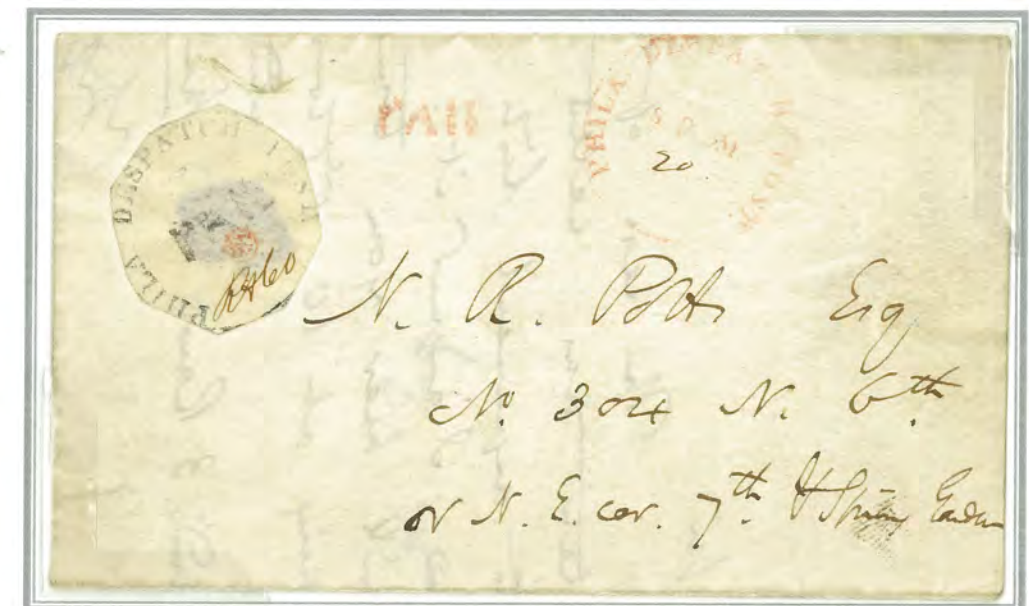 PHILA DESPATCH POST
PAID
PHILA DESPATCH POST
20.
R460
N. R. Potts Esq
No. 304 N. 6th.
or N. E. cor. 7th. & Spring Garden